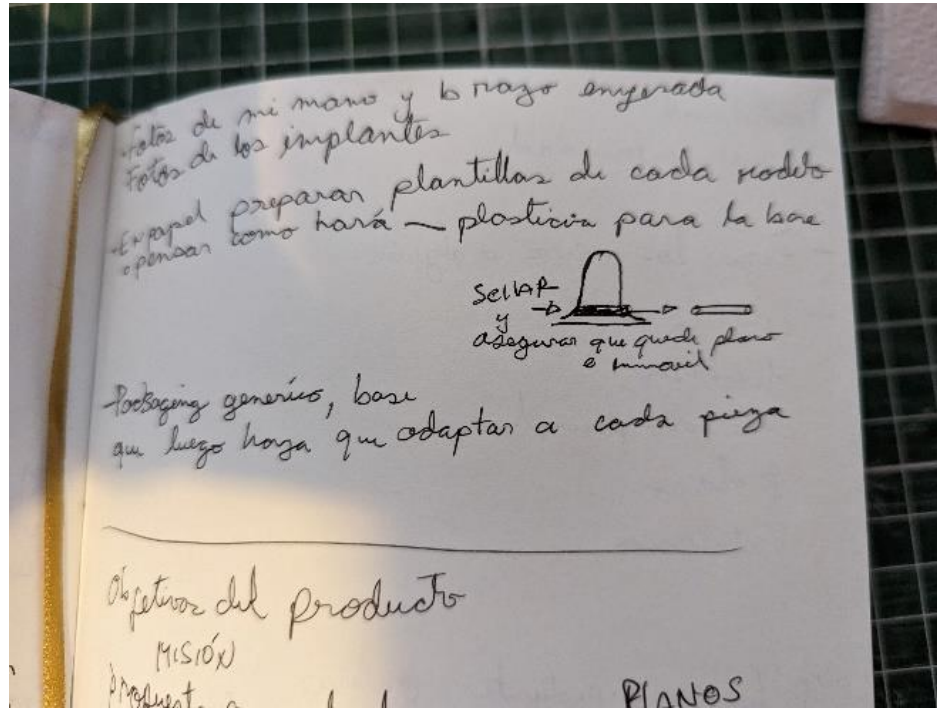 -Fotos de mi mano y brazo enyesada
Fotos de los implantes
-En papel preparar plantillas de cada modelo
o pensar como hará — plasticina para la base
SELLAR
y
asegurar que quede plano
e inmovil
-Packaging generico, base
que luego haya que adaptar a cada pieza
Objetivos del producto
MISIÓN
PLANOS